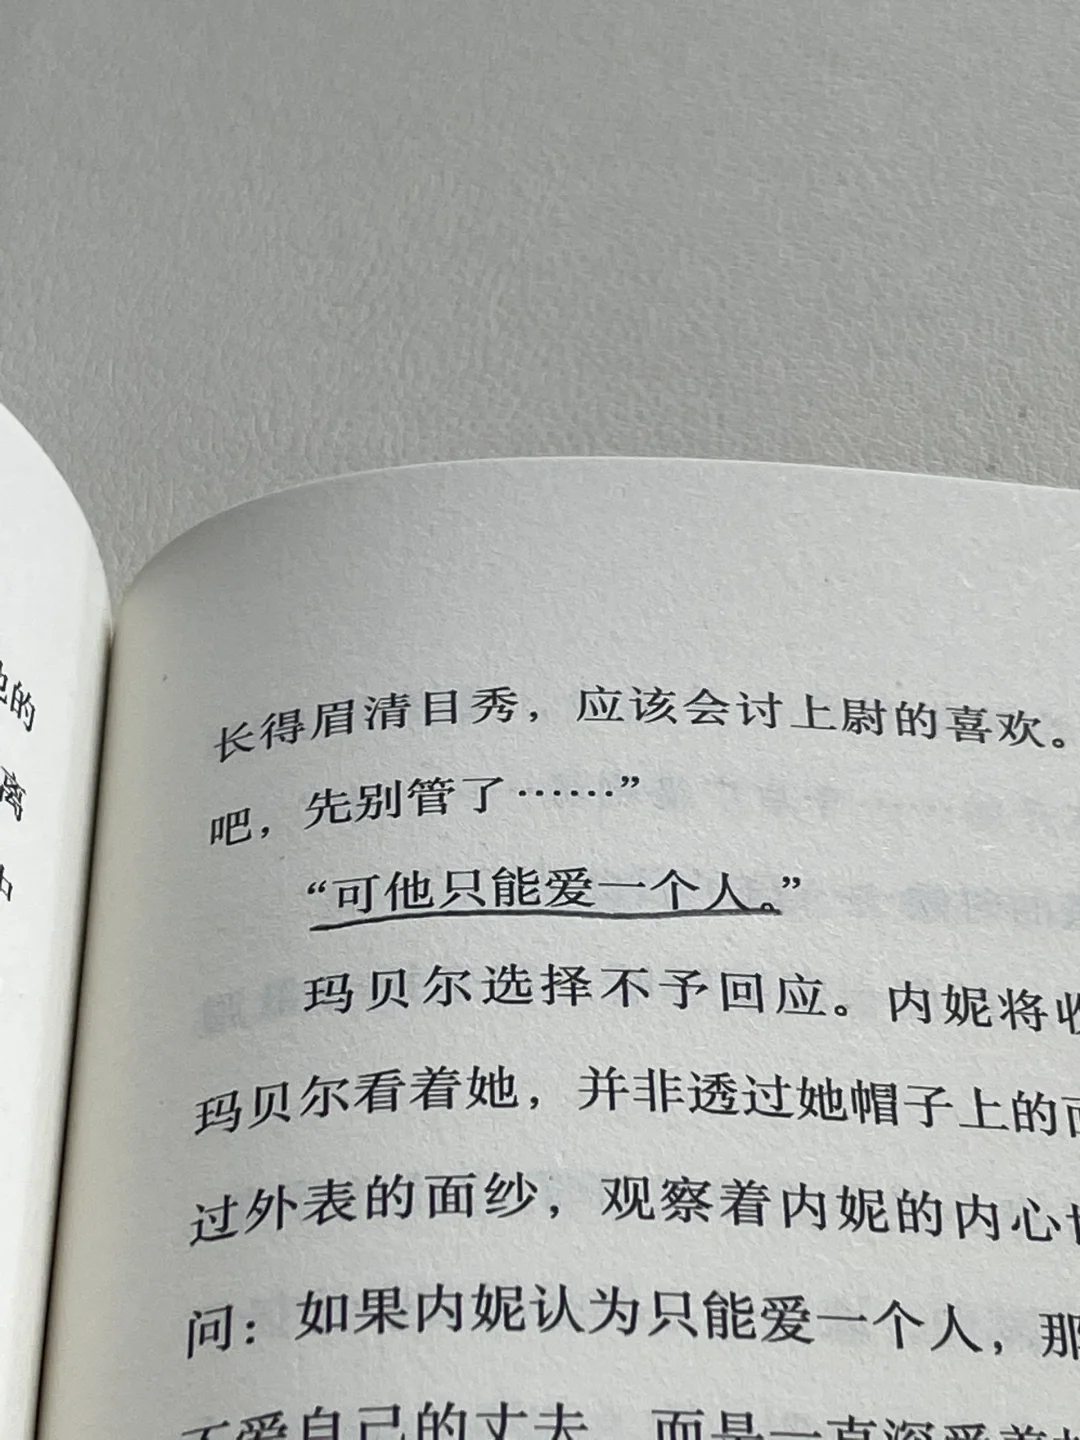 的
离
长得眉清目秀，应该会讨上尉的喜欢。
吧，先别管了……”
“可他只能爱一个人。”
玛贝尔选择不予回应。内妮将收
玛贝尔看着她，并非透过她帽子上的面
过外表的面纱，观察着内妮的内心
问：如果内妮认为只能爱一个人，那
不爱自己的丈夫，而是一直深爱着